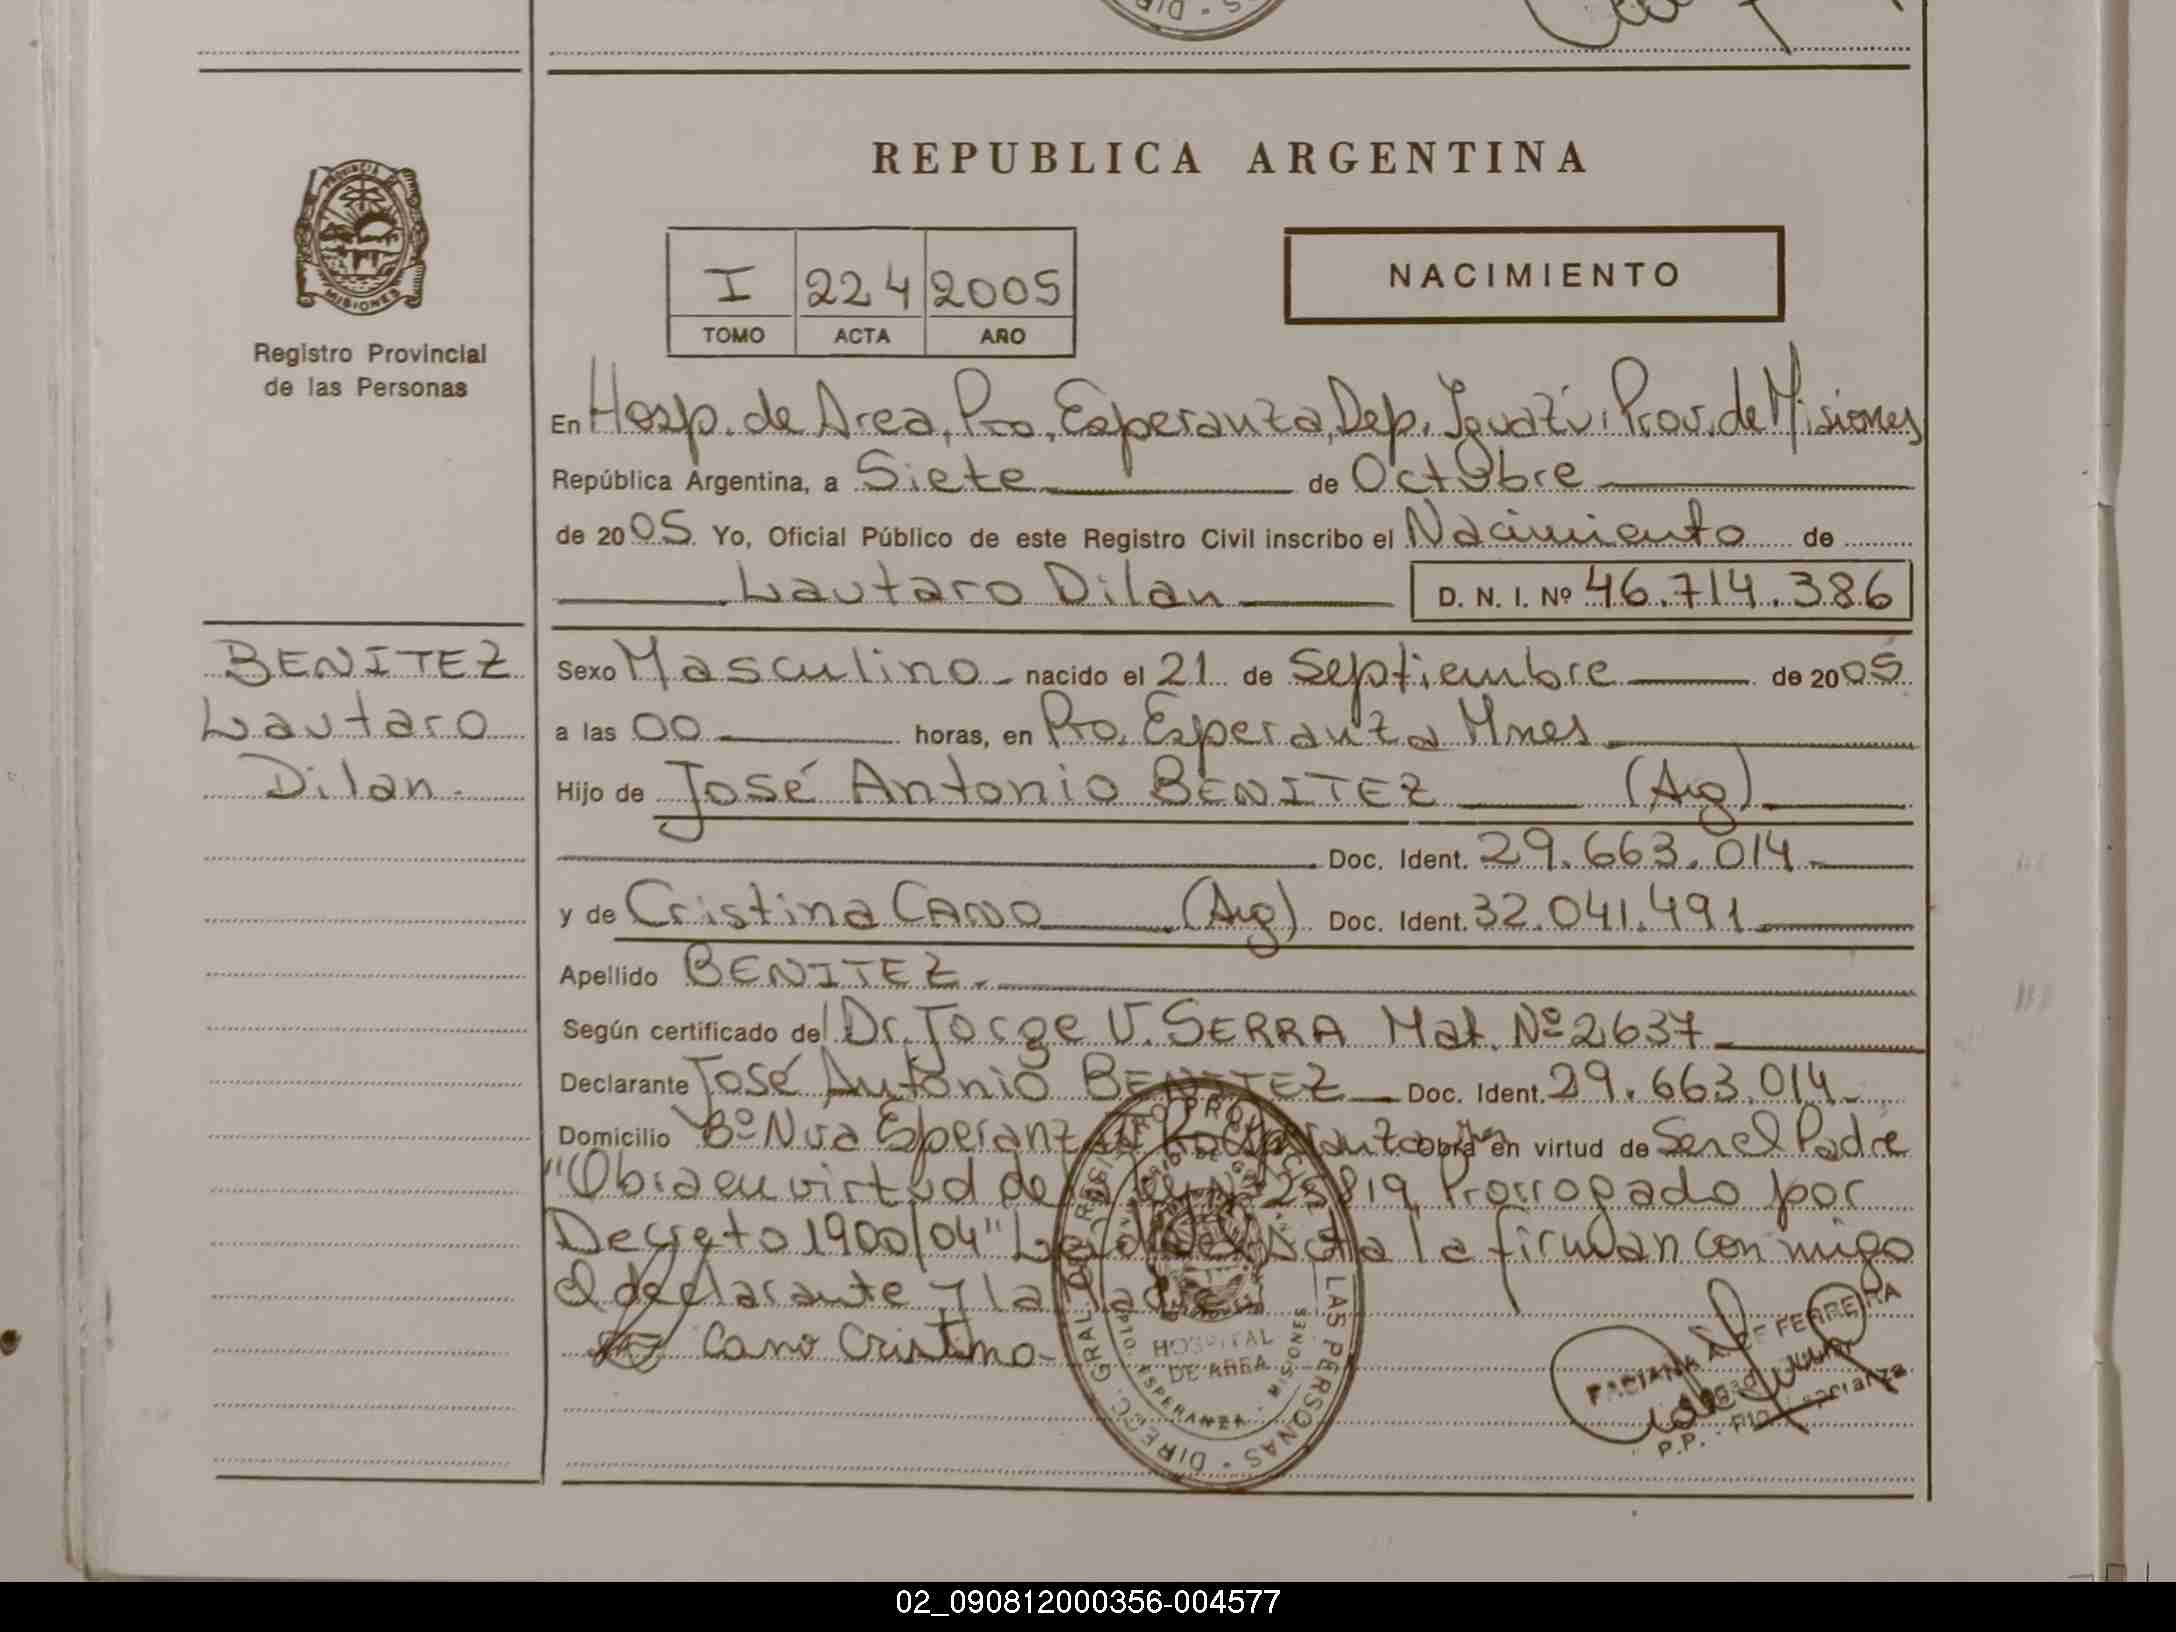 REPUBLICA ARGENTINA
PROVINCIA DE
MISIONES
Registro Provincial
de las Personas
I 224 2005
TOMO ACTA AÑO
NACIMIENTO
En Hosp. de Area, Pto, Esperanza, Dep. Iguazú, Prov. de Misiones
República Argentina, a Siete de Octubre
de 2005 Yo, Oficial Público de este Registro Civil inscribo el Nacimiento de
Lautaro Dilan D. N. I. Nº 46.714.386
BENITEZ
Lautaro
Dilan.
Sexo Masculino nacido el 21 de Septiembre de 2005
a las 00 horas, en Pto. Esperanza Mnes
Hijo de José Antonio BENITEZ (Arg)
Doc. Ident. 29.663.014
y de Cristina CANO (Arg) Doc. Ident. 32.041.491
Apellido BENITEZ.
Según certificado del Dr. Jorge V. SERRA Mat. Nº 2637
Declarante José Antonio BENITEZ Doc. Ident. 29.663.014
Domicilio Bº Nva Esperanza Pto Esperanza Obra en virtud de Ser el Padre
"Obra en virtud de la Ley Nº 25819 Prorrogado por
Decreto 1900/04" Leída el Acta la firman con migo
el declarante y la Madre
Cano Cristina
DIREC. GRAL. REGISTRO PROVINCIAL LAS PERSONAS
HOSPITAL
DE AREA
ESPERANZA - MISIONES
DE FERREIRA
P.P.
02_090812000356-004577